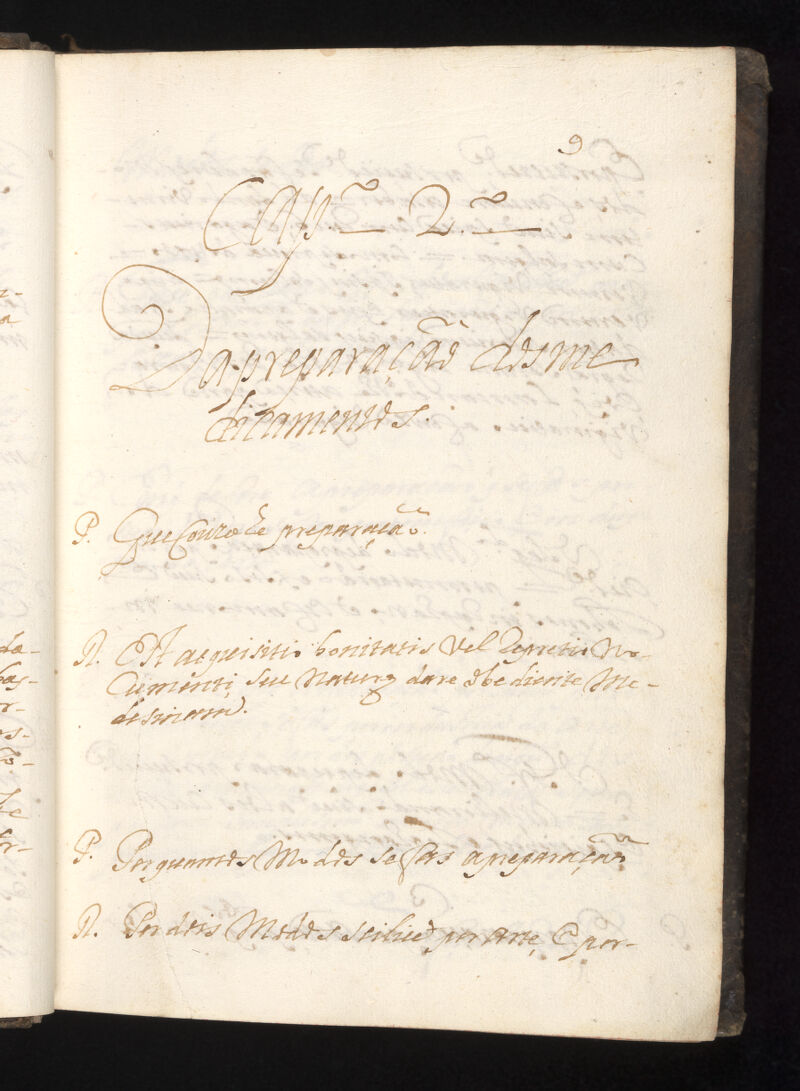 9
Capº 2º
Da preparaçaõ dos me
dicamentos.
P. Que Couza he preparaçaõ.
R. Est acquisitio bonitatis vel No
Cumenti sue Naturæ dare obediente Me-
desinam.
P. Por quantos Modos se fas a preparaçaõ
R. Por dois Modos scilicet por Arte, E por-